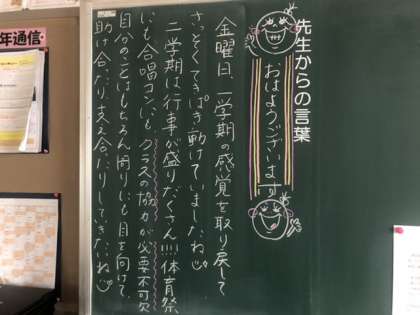 先生からの言葉
おはようございます
金曜日、一学期の感覚を取り戻して
さっそくてきぱき動けていましたね
二学期は行事が盛りだくさん!!!!体育祭
にも合唱コンにも、クラスの協力が必要不可欠
自分のことはもちろん周りにも目を向けて、
助け合ったり、支え合ったりしていきたいね
年通信